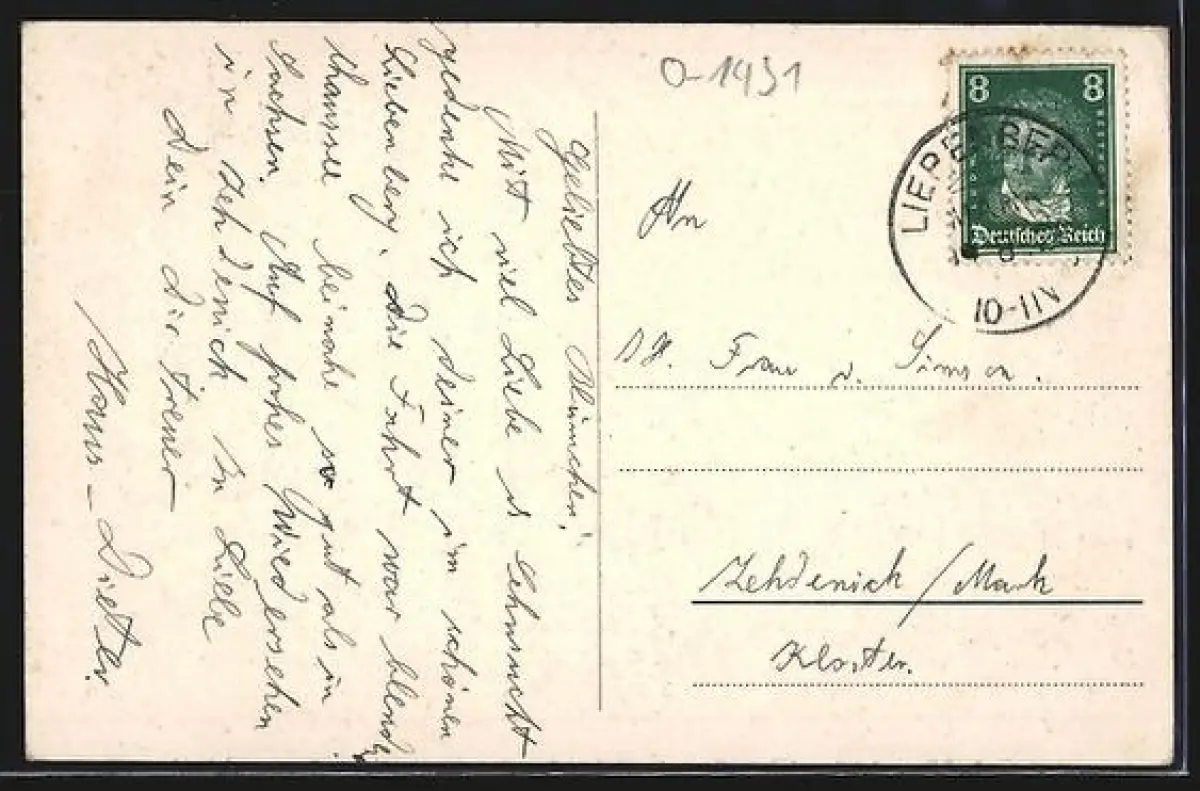 O-1931
8 8
Deutsches Reich
LIEBENBERG
10-11V
Geliebtes Blümchen!
Mit viel Liebe u Sehnsucht
gedenke ich deiner im schönen
Liebenberg. Die Fahrt war blendend
beinahe so gut als in
Sachsen. Auf frohes Wiedersehen
in Zehdenick in Liebe
Dein Dir treuer
Hans-Dietler.
An
Frau v. Simson.
Zehdenick/Mark
Kloster.